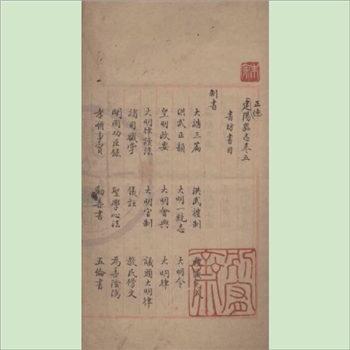 正德
建陽縣志卷五
書坊書目
制書
大誥三篇 洪武禮制
洪武正韻 大明一統志 大明令
皇明政要 大明會典 大明律
大明律讀法 大明官制 議頭大明律
諸司職掌 儀註 教民榜文
開國功臣錄 聖學心法 為善陰隲
孝順事實 勸善書 五倫書